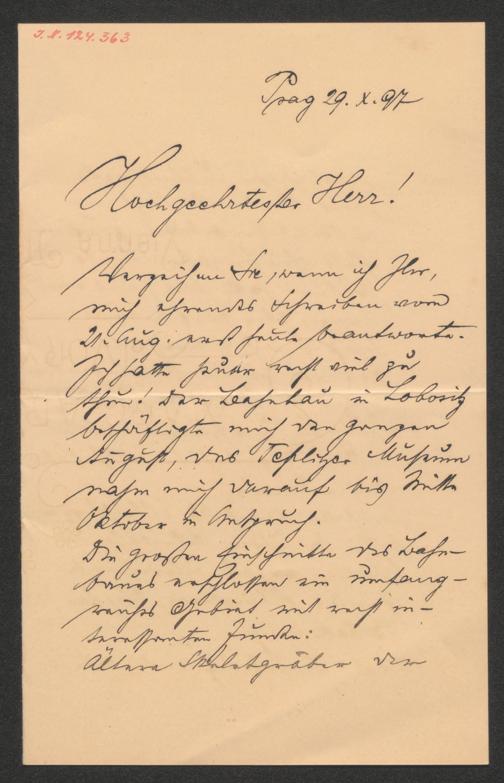 J.N. 124.363
Prag 29. X. 97
Hochgeehrtester Herr!
Verzeihen Sie, wenn ich Ihr,
mich ehrendes Schreiben vom
21. Aug. erst heute beantworte.
Ich hatte zwar recht viel zu
thun! Der Bahnbau in Lobositz
beschäftigte mich den ganzen
August, das Teplitzer Museum
nahm mich darauf bis Mitte
Oktober in Anspruch.
Die großen Einschnitte des Bahn-
baues erschlossen ein umfang-
reiches Gebiet mit recht in-
teressanten Funden:
Ältere Skeletgräber der